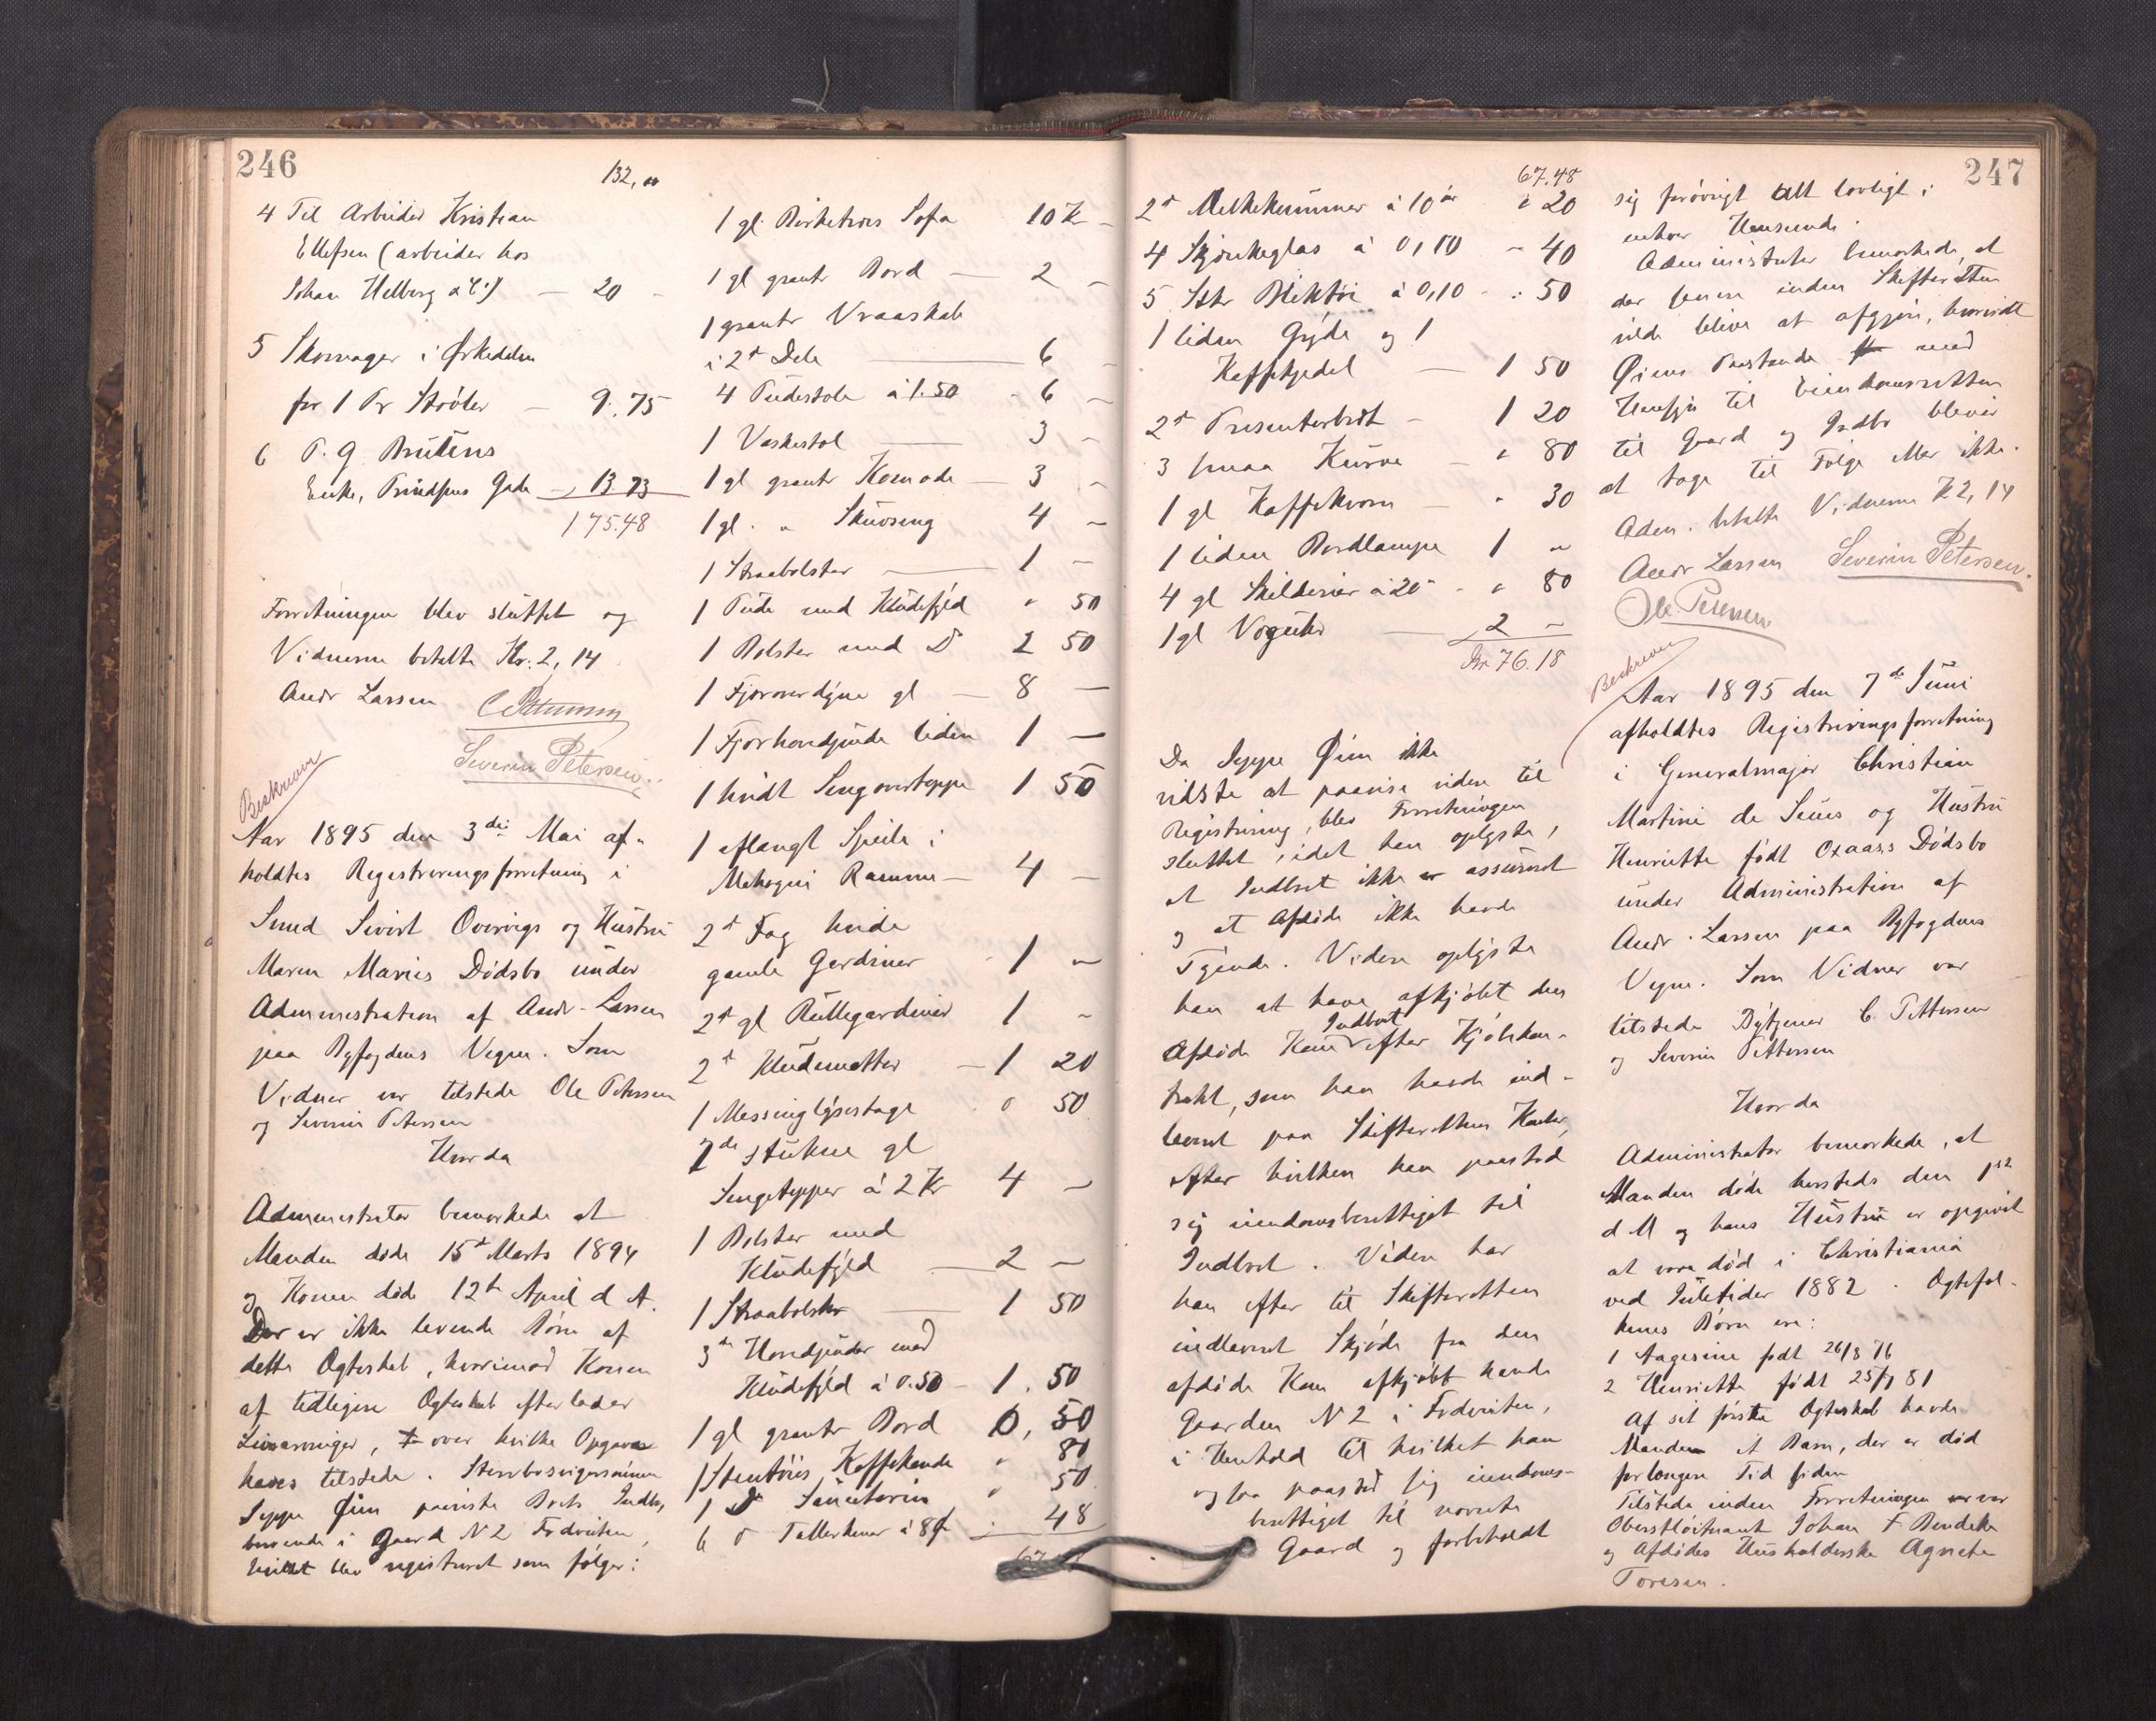 246
132, "
4 Til Arbeider Kristian
Ellefsen (arbeider hos
Johan Helberg & C:)  20 -
5 Skomager i Ørkedalen
for 1 Pr Støvler - 9.75
6 P. G. Brutens
Enke, Trindsens Gade - 13 73
175.48
Forretningen blev sluttet og
Vidnerne betalte Kr. 2,14
Andr Lassen C Pettersen
Severin Petersen.
Beskreven
Aar 1895 den 3die Mai af-
holdtes Registreringsforretning i
Smed Sivert Overvigs og Hustru
Maren Maries Dødsbo under
Administration af Andr. Lassen
paa Byfogdens Vegne. Som
Vidner var tilstede Ole Petersen
og Severin Petersen
Hvorda
Administrator bemærkede at
Manden døde 15d Marts 1894
og Konen døde 12te April d. A.
Der er ikke levende Børn af
dette Ægteskab, hvorimod Konen
af tidligere Ægteskab efterlader
Livsarvinger, over hvilke Opgave
haves tilstede. Stervbosvigersønnen
Jeppe Øien paaviste Boets Indbo,
beroende i Gaard N 2 Fodveiten,
hvilket blev registreret som følger:
1 gl. Birketræs Sofa 10 K -
1 gl grantr Bord - 2 -
1 grantr Vraaskab
i 2d Dele - 6 -
4 Pindestole à 1.50 - 6 -
1 Vaskestol - 3 -
1 gl grantr Komode - 3 -
1 gl. " Skuvseng 4 -
1 Straabolster - 1 -
1 Pude med Kludefyld " 50
1 Bolster med Do 2 50
1 Fjæroverdyne gl - 8 -
1 Fjærhovedpude liden 1 -
1 hvidt Sengovertæppe 1 50
1 aflangt Speile i
Mahogni Ramme - 4 -
2d Fag hvide
gamle Gardiner - 1 -
2d gl Rullegardiner 1 -
2d Kludematter - 1 20
1 Messinglysestage . 0 50
2de stukne gl
Sengetæpper à 2 Kr 4 -
1 Bolster med
Kludefyld - 2 -
1 Straabolster - 1 50
3de Hovedpuder med
Kludefyld à 0.50 - 1. 50
1 gl grantr Bord 0, 50
1 Stentøis Kaffekande " 80
1 Do " 50
6 do Tallerkener à 8 ø . 48
247
67.48
2d Melkekummer à 10 ør " 20
4 Skjænkeglas à 0,10 - 40
5 Stkr Bliktøi à 0,10 - : 50
1 liden Gryde og 1
Kaffekjedel - 1 50
2d Presenterbret - 1 20
3 smaa Kurve - " 80
1 gl Kaffekvern - " 30
1 liden Bordlampe 1 "
4 gl Skilderier à 20 - " 80
1 gl Vægeuhr - 2 -
Kr. 76.18
Da Jeppe Øien ikke
vidste at paavise videre til
Registrering, blev Forretningen
sluttet, idet han oplyste,
at Indboet ikke er assureret
og at Afdøde ikke havde
Tyende. Videre oplyste
han at have afkjøbt den
Afdøde Kone Indboet efter Kjøbekon-
trakt, som han havde ind-
leveret paa Skifterettens Kontor,
efter hvilken han paastod
sig eiendomsberettiget til
Indboet. Videre har
han efter til Skifteretten
indleveret Skjøde fra den
afdøde Kone afkjøbt hende
Gaarden N 2 i Fodveiten,
i Henhold til hvilket han
ogsaa paastod sig eiendoms-
berettiget til nævnte
Gaard og forbeholdt
sig forøvrigt Alt lovligt i
enhver Henseende.
Administrator bemærkede, at
der senere inden Skifteretten
vilde blive at afgjøre, hvorvidt
Øiens Paastande med
Hensyn til Eiendomsretten
til Gaard og Indbo bliver
at tage til Følge eller ikke.
Adm. betalte Vidnerne K 2,14
Andr Lassen Severin Petersen.
Ole Petersen
Beskreven
Aar 1895 den 7de Juni
afholdtes Registreringsforretning
i Generalmajor Christian
Martini de Seues og Hustru
Henriette født Oxaass Dødsbo
under Administration af
Andr. Lassen paa Byfogdens
Vegne. Som Vidner var
tilstede Bytjener C. Pettersen
og Severin Pettersen
Hvorda
Administrator bemærkede, at
Manden døde hersteds den 1ste
d M og hans Hustru er opgivet
at være død i Christiania
ved Juletider 1882. Ægtefol-
kenes Børn ere:
1 Aagesine født 26/8 76
2 Henriette født 25/7 81
Af sit første Ægteskab havde
Manden et Barn, der er død
for længere Tid siden
Tilstede inden Forretningen var
Oberstløitnant Johan F Bendeke
og Afdødes Husholderske Agnete
Toresen.